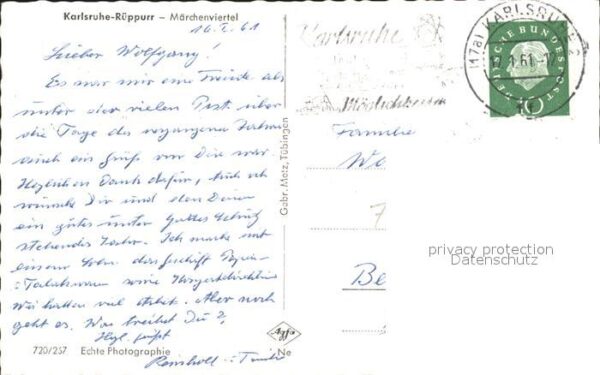 Karlsruhe-Rüppurr – Märchenviertel
16.1.61
Lieber Wolfgang!
Es war mir eine Freude als
unter der vielen Post über
die Tage des vergangenen Jahres
auch ein Gruß von Dir war
Herzlichen Dank dafür, auch ich
wünsche Dir und den Deinen
ein gutes unter Gottes Schutz
stehendes Jahr. Ich mache mit
einem
Tabakwaren sowie
Wir haben viel Arbeit. Aber noch
geht es. Was treibst Du?
Hzgl. grüßt
Reinholt
720/257 Echte Photographie
Agfa
Ne
Gebr. Metz, Tübingen
Karlsruhe
(17a) KARLSRUHE 2
1.61
DEUTSCHE BUNDESPOST
10
Familie
We
7
Be
privacy protection
Datenschutz